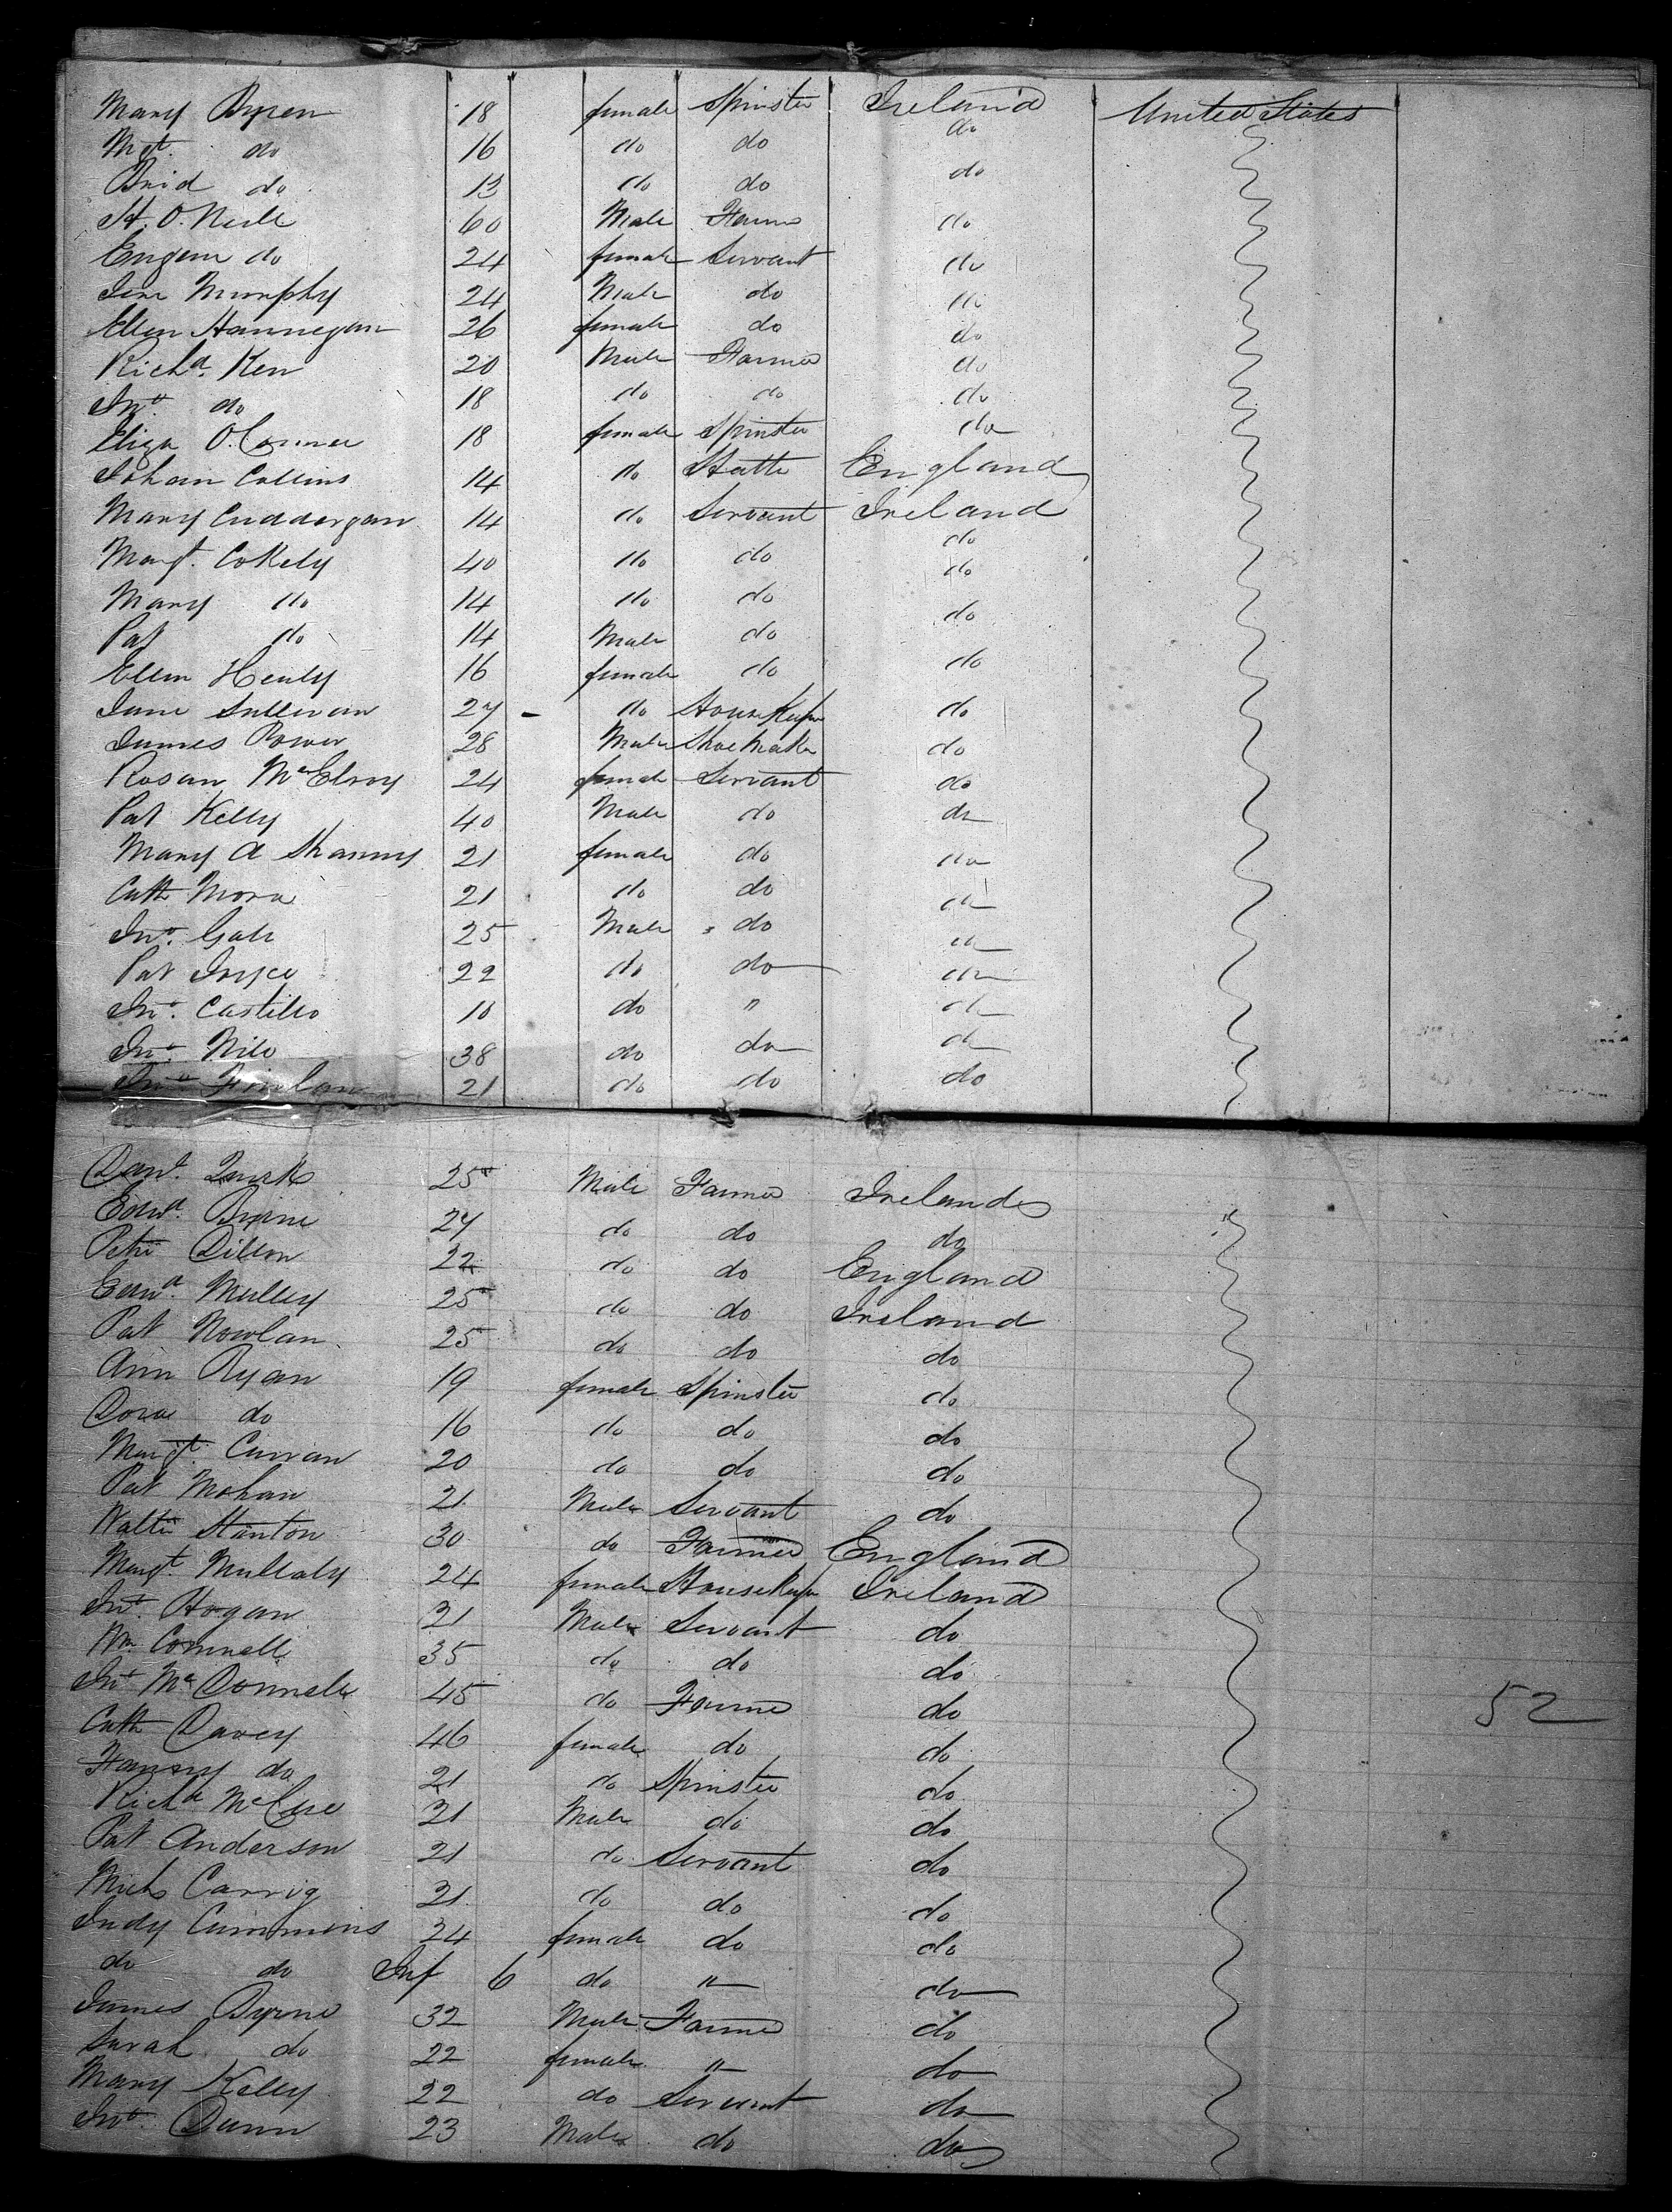 Mary Byren 18 female Spinster Ireland United States
Mgt. do 16 do do do
Brid do 13 do do do
H. O. Neile 60 Male Farmer do
Eugene do 24 female Servant do
Jere Murphy 24 Male do do
Ellen Hannegan 26 female do do
Richd. Ken 20 Male Farmer do
Jno. do 18 do do do
Eliza O. Connor 18 female Spinster do
Johan Collins 14 do England
Mary Cuddargan 14 do Servant Ireland
Margt. Cokely 40 do do do
Mary do 14 do do do
Pat do 14 Male do do
Ellen Healy 16 female do do
Jane Sullivan 27 - do House Keeper do
James Power 28 Male Shoe Maker do
Rosan McElroy 24 female Servant do
Pat Kelly 40 Male do do
Mary A Shanny 21 female do do
Cath Mora 21 do do do
Jno. Gale 25 Male do do
Pat Joyce 22 do do do
Jno. Castillo 10 do " do
Jno. Nilo 38 do do do
Jno. Finlan 21 do do do
Danl. Quirk 25 Male Farmer Ireland "
Edwd. Byrne 27 do do do
Peter Dillon 22 do do England
Edwd. Mulley 25 do do Ireland
Pat Nowlan 25 do do do
Ann Ryan 19 female Spinster do
Dora do 16 do do do
Margt. Curran 20 do do do
Pat Mohan 21 Male Servant do
Walter Stanton 30 do Farmer England
Margt. Mullaly 24 female House Keeper Ireland
Jno. Hogan 21 Male Servant do
Wm. Connell 35 do do do
Jno. McDonnell 45 do Farmer do 52
Cath Davey 46 female do do
Fanny do 21 do Spinster do
Richd. McCue 21 Male do do
Pat Anderson 21 do Servant do
Mich Carrig 21 do do do
Judy Cummins 24 female do do
do do Inf 6 do " do
James Byrne 32 Male Farmer do
Sarah do 22 female " do
Mary Kelly 22 do Servant do
Jno. Dunn 23 Male do do